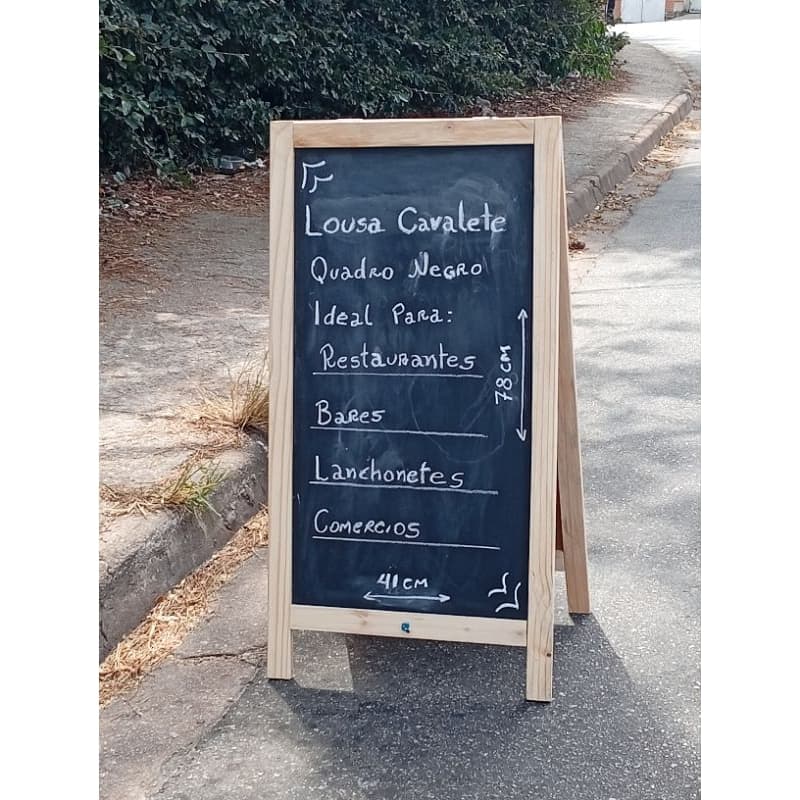 Lousa Cavalete
Quadro Negro
Ideal Para:
Restaurantes
78 cm
Bares
Lanchonetes
Comercios
41 cm